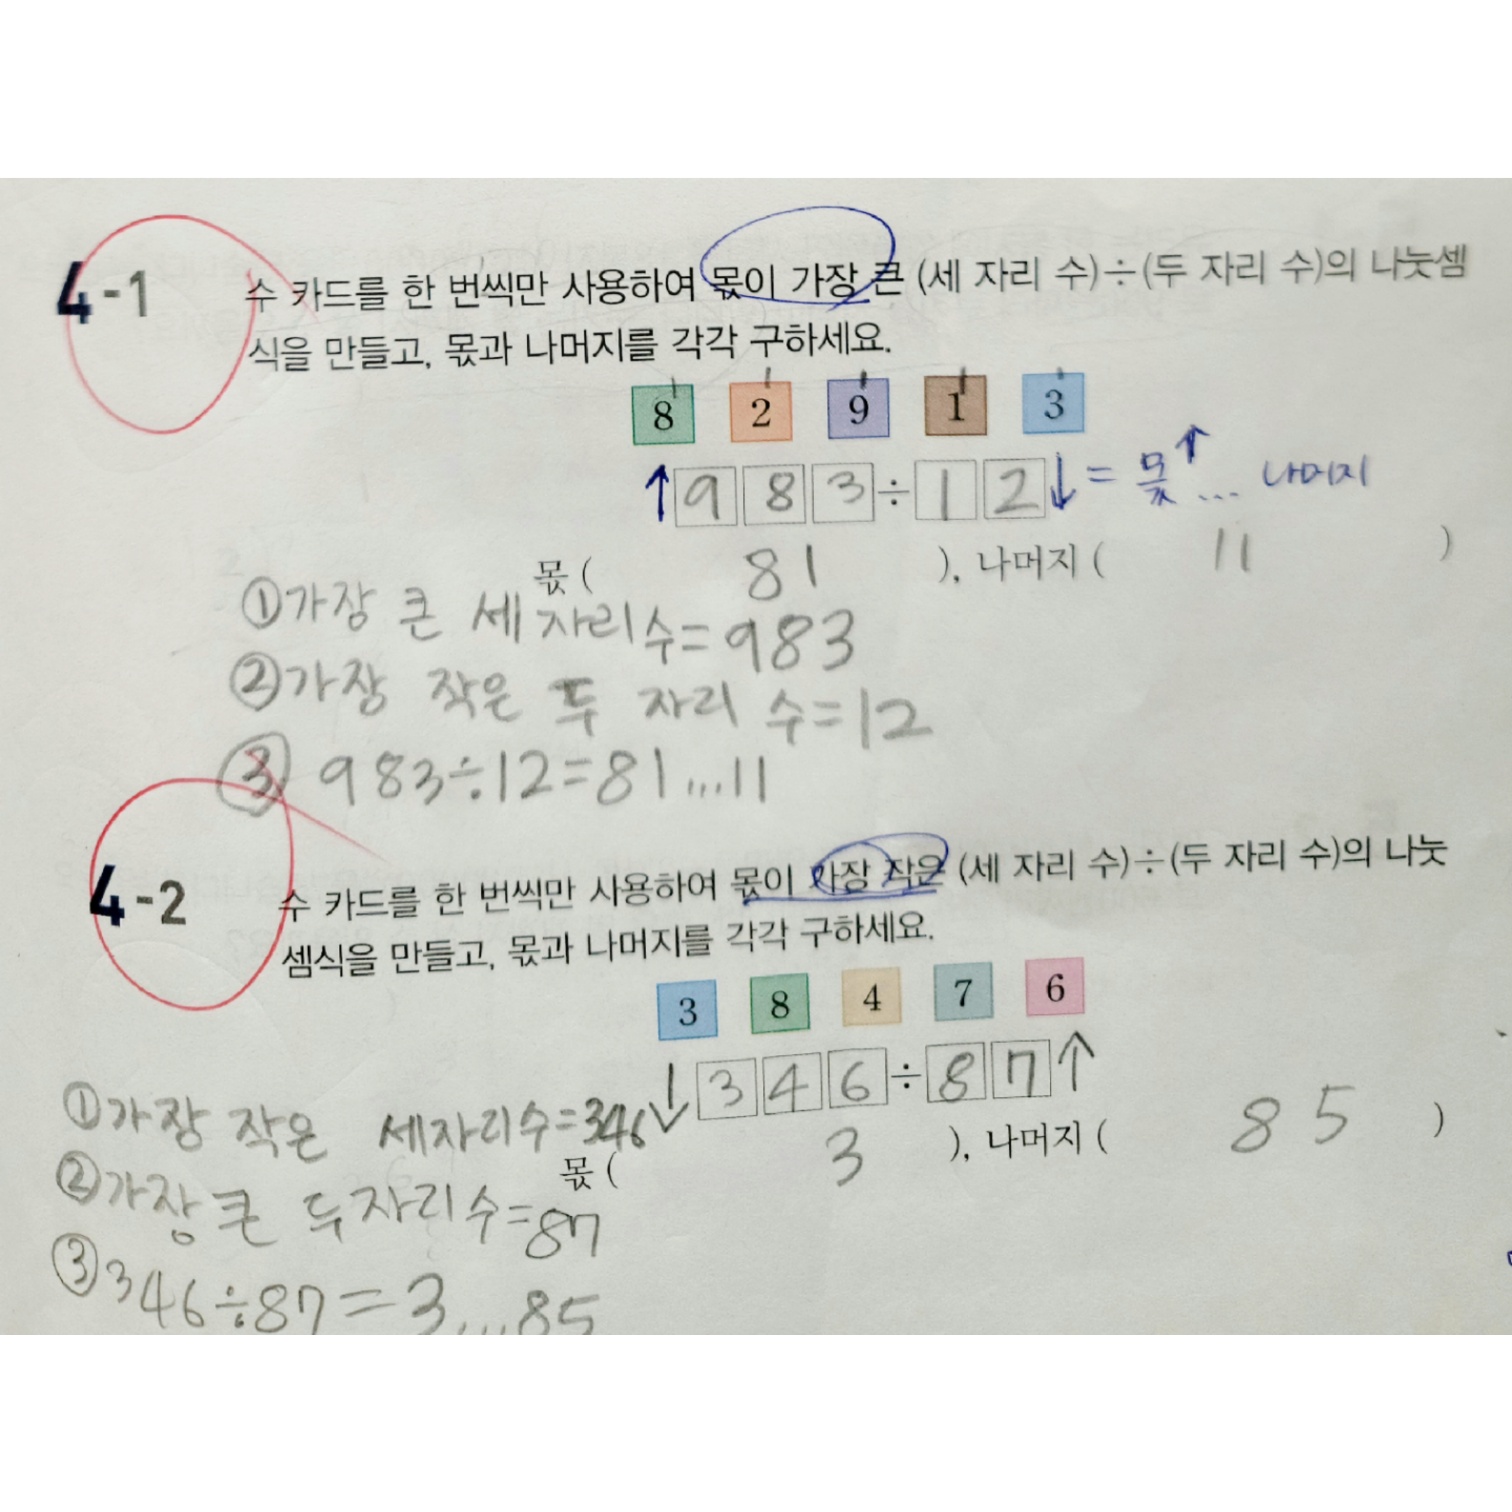 4-1 수 카드를 한 번씩만 사용하여 몫이 가장 큰 (세 자리 수)÷(두 자리 수)의 나눗셈
식을 만들고, 몫과 나머지를 각각 구하세요.
8 2 9 1 3
↑ 9 8 3 ÷ 1 2 ↓ = 몫↑ ... 나머지
몫 ( 81 ), 나머지 ( 11 )
①가장 큰 세 자리 수=983
②가장 작은 두 자리 수=12
③ 983÷12=81...11
4-2 수 카드를 한 번씩만 사용하여 몫이 가장 작은 (세 자리 수)÷(두 자리 수)의 나눗
셈식을 만들고, 몫과 나머지를 각각 구하세요.
3 8 4 7 6
↓ 3 4 6 ÷ 8 7 ↑
①가장 작은 세자리수=346
몫 ( 3 ), 나머지 ( 85 )
②가장 큰 두자리수=87
③346÷87=3...85